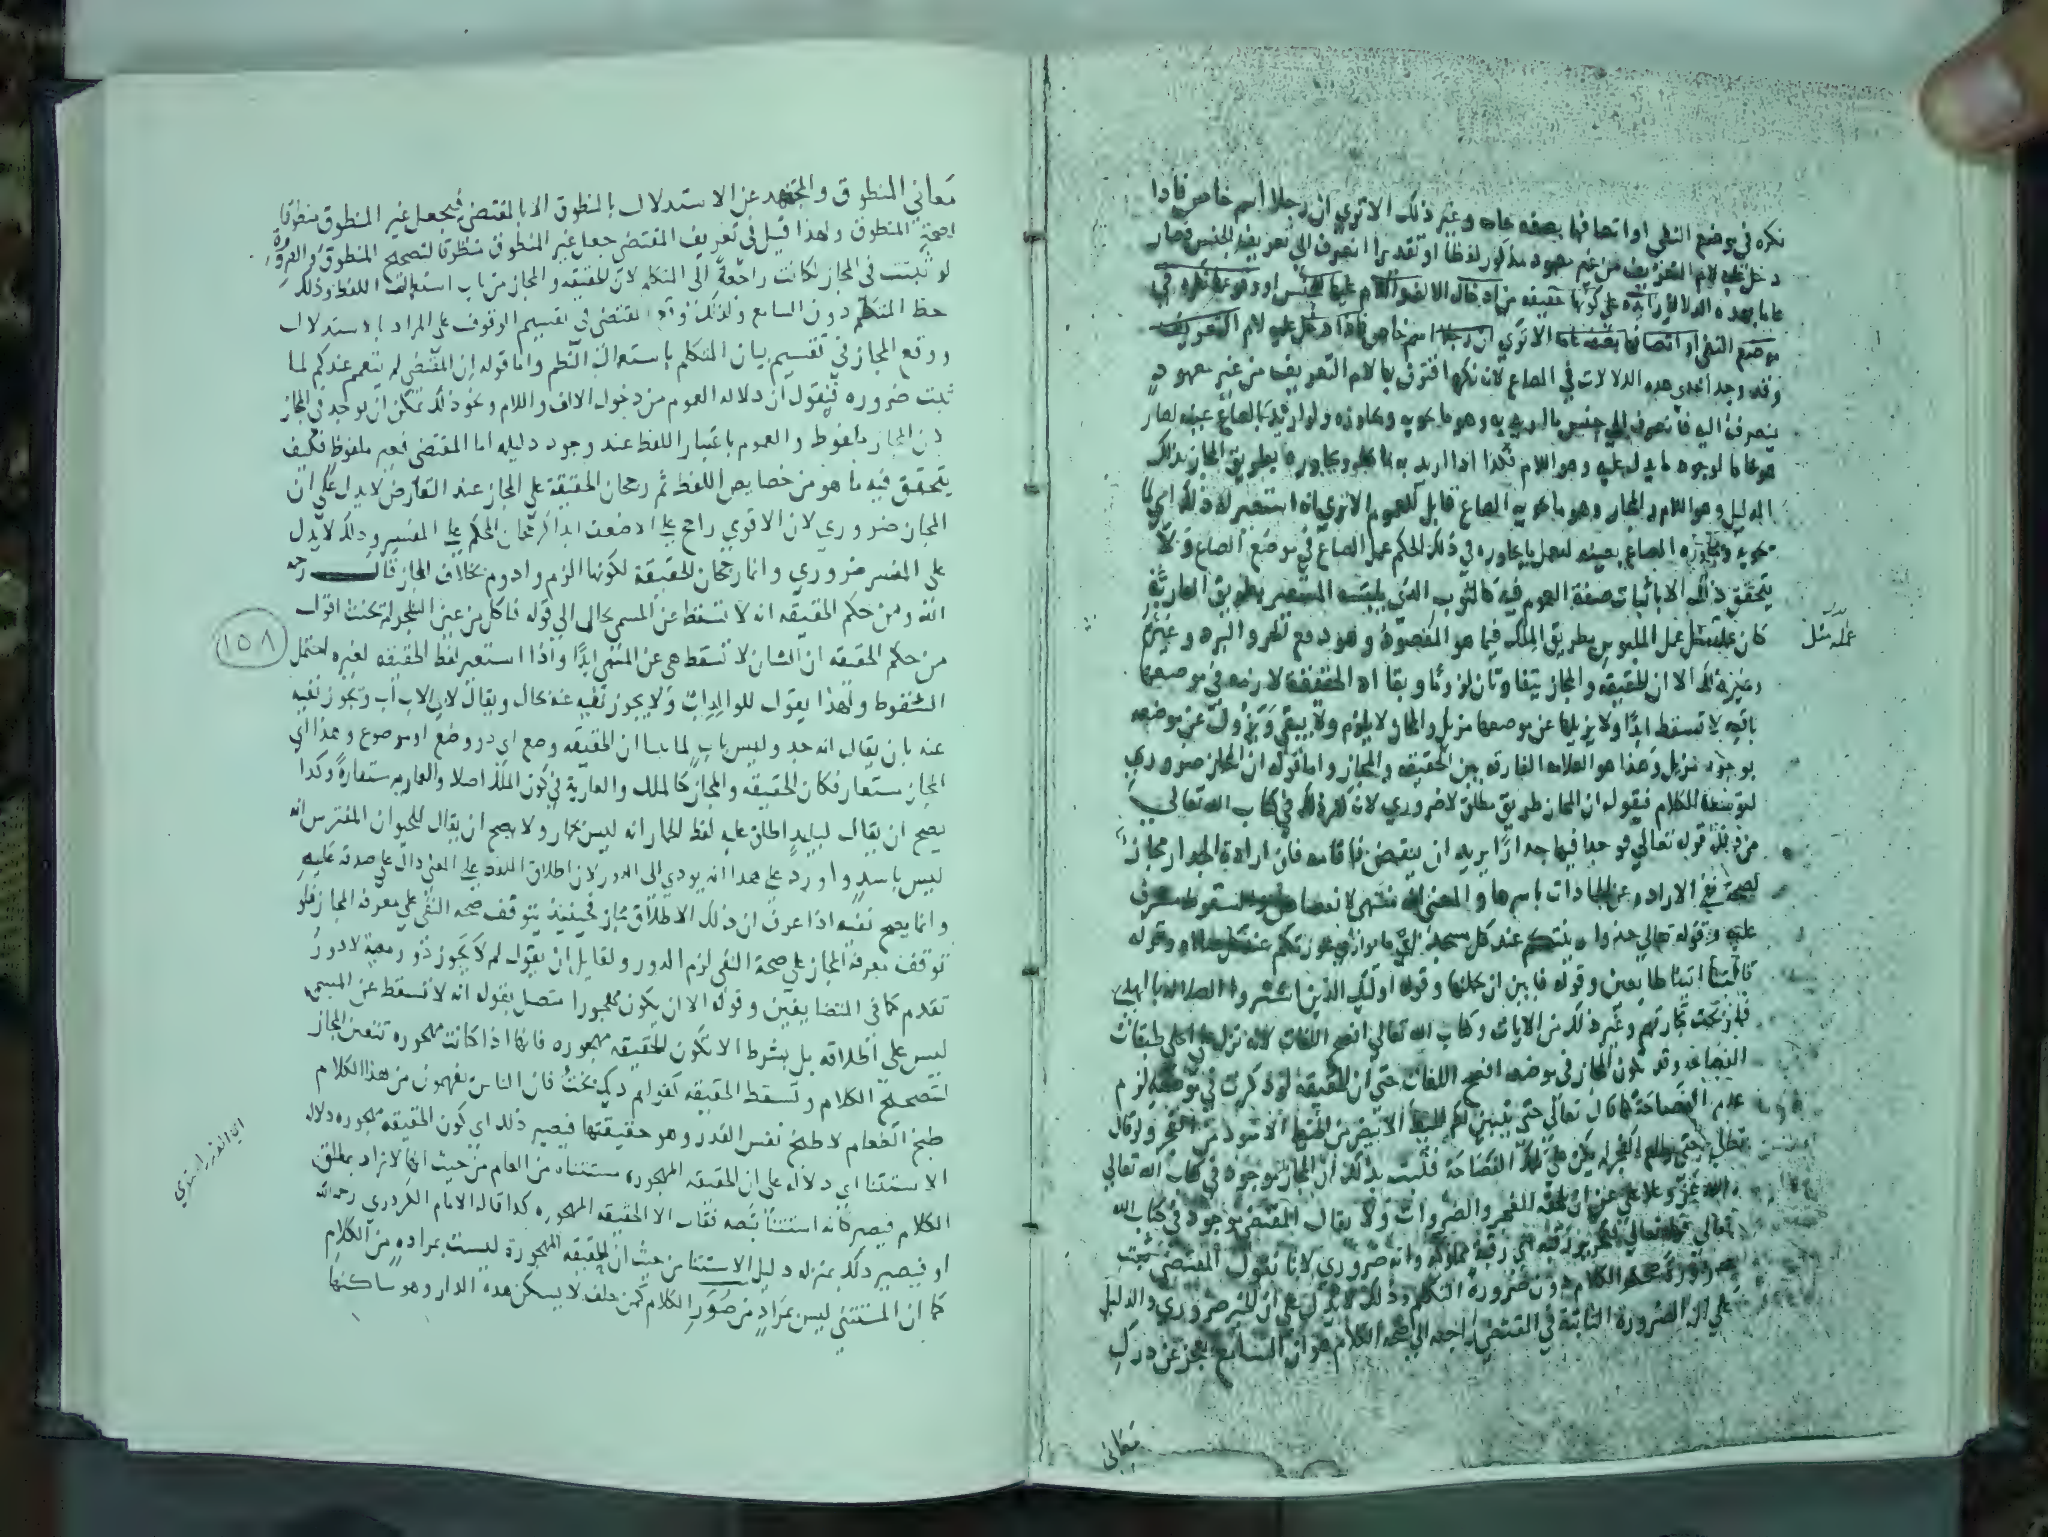 نكره في موضع النفي او اتصافها بصفه عامه وغير ذلك الا تري ان رجلا اسم خاص فاذا
دخل عليه لام التعريف من غير معهود مذكور لفظا او تقديرا انصرف الى تعريف الجنس فصار
عاما بهذه الدلالة زايده على كونها حقيقه من ادخال الالف واللام عليها للجنس او وقوعها نكره في
موضع النفي او اتصافها بصفه عامه الا تري ان رجلا اسم خاص فاذا دخل عليه لام التعريف
وقد وجد احدي هذه الدلالات في الصاع لان نكرها اقترن بها لام التعريف من غير معهود
ينصرف اليه فانصرف الى جنس ما اريد به وهو ما يحويه ويجاوره ولو اريد بالصاع عينه لصار
هو عاما لوجود ما يدل عليه وهو اللام فكذا اذا اريد به ما يحله ويجاوره بطريق المجاز بذلك
الدليل وهو اللام والمجاز وهو ما يحويه الصاع قابل للعموم الا تري انه استعير له ذلك اي لما
يحويه ويجاوره الصاع بعينه ليعمل فيما يجاوره في ذلك الحكم عمل الصاع في موضع الصاع ولا
يتحقق ذلك الا باثبات صفة العموم فيه كالثوب الذي يلبسه المستعير بطريق العارية
كان عمله مثل عمل الملبوس بطريق الملك فيما هو المقصود وهو دفع الحر والبرد وغيرهم
وغير ذلك الا ان الحقيقه والمجاز يتفاوتان لزوما وبقا اذ الحقيقة لازمه في موضعها
باقيه لا تسقط ابدا ولا يزيلها عن موضعها مزيل والمجاز لا يلزم ولا يبقي ويزول عن موضعه
بوجود مزيل وهذا هو العلامه الفارقه بين الحقيقه والمجاز واما قوله ان المجاز ضروري
لتوسعة الكلام فيقول ان المجاز طريق مطلق لا ضروري لانه كثر ذلك في كتاب الله تعالي
من ذلك قوله تعالي فوجدا فيها جدارا يريد ان ينقض فاقامه فان ارادة الجدار مجاز
لصحة نفي الارادة عن الجمادات باسرها والمعني انه
عليه وقوله تعالي خذوا زينتكم عند كل مسجد اي ما يواري عورتكم عند كل صلاة وقوله
قالتا اتينا طايعين وقوله فابين ان يحملنها وقوله اوليك الذين اشتروا الضلاله بالهدي
فما ربحت تجارتهم وغير ذلك من الايات وكتاب الله تعالي افصح اللغات لانه نزل على اعلى طبقات
الفصاحه وقد يكون المجاز في موضعه افصح اللغات حتى ان الحقيقة لو ذكرت في موضعه لزم
عدم الفصاحة كما قال تعالي حتى يتبين لكم الخيط الابيض من الخيط الاسود من الفجر ولو قال
تعالي حتى يطلع الفجر لم يكن على تلك الفصاحة فثبت بذلك ان المجاز موجود في كتاب الله تعالي
والله عز وعلا علي عن ان يلحقه القهر والضرورات ولا يقال المقتضي موجود في كتاب الله
تعالي قوله تعالي فتحرير رقبه اي رقبة مملوكة وانه ضروري لانا نقول المقتضي يثبت
ضرورة صحة الكلام دون ضرورة التكلم وذلك لا يدل على ان المتكلم ضروري والدليل
علي ان الضرورة الثابتة في المقتضي راجعه الى صحة الكلام هو ان السامع يعجز عن درك
معاني
عمله مثل
معاني المنطوق والمجتهد عن الاستدلال بالمنطوق الا بالمقتضي فيجعل غير المنطوق منطوقا
لصحة المنطوق ولهذا قيل في تعريف المقتضي جعل غير المنطوق منطوقا لتصحيح المنطوق والضرورة
لو ثبتت في المجاز لكانت راجعة الى المتكلم لان الحقيقه والمجاز من باب استعمال اللفظ وذلك
حظ المتكلم دون السامع ولذلك وقع المقتضي في تقسيم الوقوف على المراد بالاستدلال
ووقع المجاز في تقسيم بيان المتكلم باستعمال النظم واما قوله ان المقتضي لم يتعمم عندكم لما
ثبت ضروره فيقول ان دلاله العموم من دخول الالف واللام ونحو ذلك يمكن ان يوجد في المجاز
لان المجاز ملفوظ والعموم باعتبار اللفظ عند وجود دليله اما المقتضي فغير ملفوظ فكيف
يتحقق فيه ما هو من خصايص اللفظ ثم رجحان الحقيقة على المجاز عند التعارض لا يدل على ان
المجاز ضروري لان الاقوي راجح على الاضعف ابدا كرجحان المحكم على المفسر وذلك لا يدل
على المفسر ضروري وانما رجحان الحقيقة لكونها الزم وادوم بخلاف المجاز قال رحمه
الله ومن حكم الحقيقه انه لا تسقط عن المسمي بحال الي قوله فاكل من عين النخله لم يحنث اقول
من حكم الحقيقه ان الشان لا تسقط هي عن المسمي ابدا واذا استعير لفظ الحقيقه لغيره احتمل
السقوط ولهذا يقول للوالد اب ولا يجوز نفيه عنه بحال ويقال لابي الاب اب ويجوز نفيه
عنه بان يقال انه جد وليس باب لما بينا ان الحقيقه وضع اي ذو وضع او موضوع وهذا اي
المجاز مستعار فكان الحقيقه والمجاز كالملك والعارية في كون الملك اصلا والعاريه مستعارة وكذا
يصح ان يقال لبليد اطلق عليه لفظ الحمار انه ليس بحمار ولا يصح ان يقال للحيوان المفترس انه
ليس باسد واورد على هذا انه يودي الى الدور لان اطلاق اللفظ على المعني دال على صدقه عليه
وانما يصح نفيه اذا عرف ان ذلك الاطلاق مجاز فحينيذ يتوقف صحة النفي على معرفه المجاز فلو
توقف معرفة المجاز على صحة النفي لزم الدور ولقايل ان يقول لم لا يجوز ذو رمعية لا دور
تقدم كما في المتضايفين وقوله الا ان يكون مهجورا متصل بقوله انه لا تسقط عن المسمي
ليس على اطلاقه بل بشرط الا تكون الحقيقه مهجوره فانها اذا كانت مهجوره تتعين المجاز
لتصحيح الكلام وتسقط الحقيقه كقولهم ديك نخت فان الناس يفهمون من هذا الكلام
طبخ الطعام لا طبخ نفس القدر وهو حقيقتها فيصير ذلك اي كون الحقيقه مهجوره دلاله
الاستثنا اي دلاله على ان الحقيقه المهجوره مستثناه من العام من حيث انها لا تراد بمطلق
الكلام فيصير كانه استثنا بنصه فقال الا الحقيقه المهجوره كذا قاله الامام الكردري رحمه الله
او فيصير ذلك بمنزله دليل الاستثنا من حيث ان الحقيقه المهجورة ليست بمراده من الكلام
كما ان المستثني ليس بمراد من صور الكلام كمن حلف لا يسكن هذه الدار وهو ساكنها
١٥٨